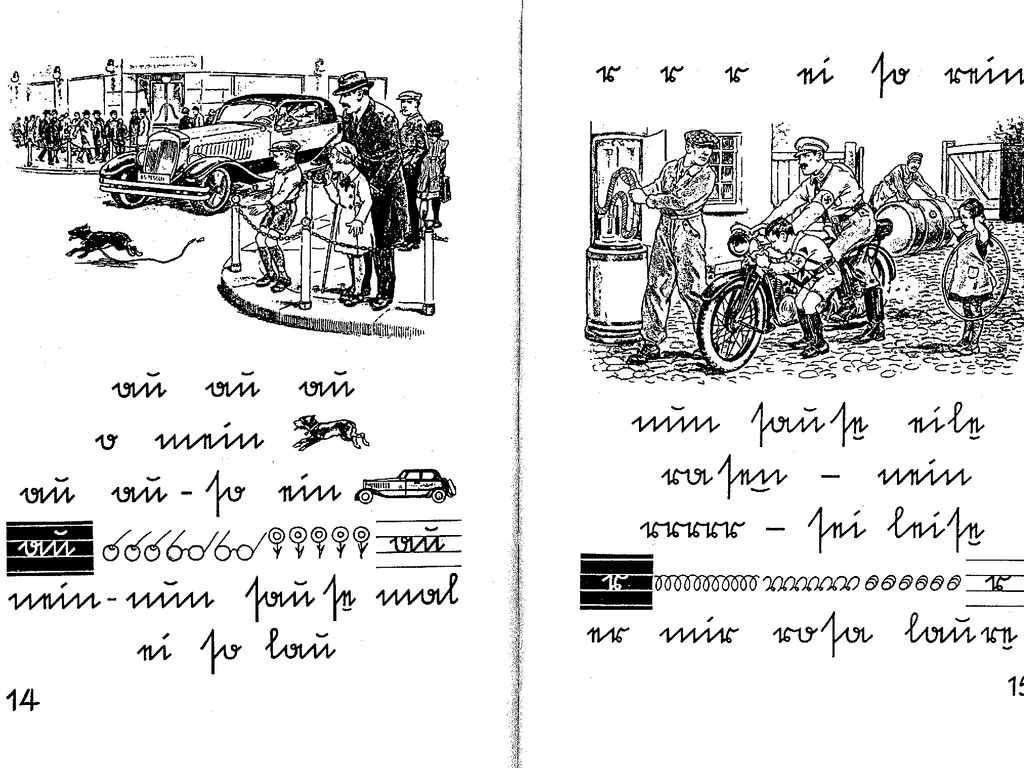 au au au
o mein
au au - ſo ein
au au
nein - nun ſauſe mal
ei ſo lau
14
r r r ei ſo rein
nun ſauſe eile
raſen – nein
rrrrr – ſei leiſe
r r
er mir roſa laure
15